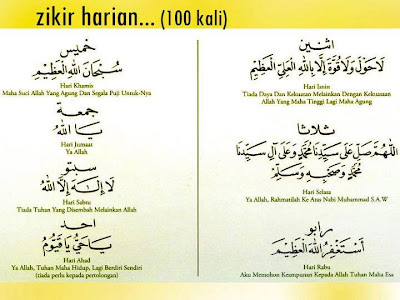 zikir harian... (100 kali)
خميس
سُبْحَانَ اللهِ الْعَظِيْمِ
Hari Khamis
Maha Suci Allah Yang Agung Dan Segala Puji Untuk-Nya
جمعة
يَا اللهُ
Hari Jumaat
Ya Allah
سبتو
لَا إِلٰهَ إِلَّا اللهُ
Hari Sabtu
Tiada Tuhan Yang Disembah Melainkan Allah
احد
يَا حَيُّ يَا قَيُّوْمُ
Hari Ahad
Ya Allah, Tuhan Maha Hidup, Lagi Berdiri Sendiri
(tiada perlu kepada pertolongan)
اثنين
لَا حَوْلَ وَلَا قُوَّةَ إِلَّا بِاللهِ الْعَلِيِّ الْعَظِيْمِ
Hari Isnin
Tiada Daya Dan Kekuatan Melainkan Dengan Kekuataan
Allah Yang Maha Tinggi Lagi Maha Agung
ثلاثا
اَللّٰهُمَّ صَلِّ عَلَى سَيِّدِنَا مُحَمَّدٍ وَعَلَى آلِ سَيِّدِنَا
مُحَمَّدٍ وَصَحْبِهِ وَسَلِّمْ
Hari Selasa
Ya Allah, Rahmatilah Ke Atas Nabi Muhammad S.A.W
رابو
أَسْتَغْفِرُ اللهَ الْعَظِيْمَ
Hari Rabu
Aku Memohon Keampunan Kepada Allah Tuhan Maha Esa